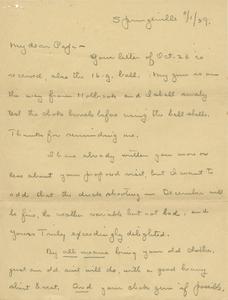 Springville 11/1/29.
My dear Page -
Your letter of Oct. 26 is
received, also the 16-g. ball. My gun is on
the way from and I shall surely
test the choke barrels before using the ball shells.
Thanks for reminding me.
I have already written you more or
less about your proposed visit, but want to
add that the duck shooting in December will
be fine, the weather variable but not bad, and
yours Truly exceedingly delighted.
By all means bring your old clothes,
just an old suit will do, with a good heavy
shirt & vest. And your choke gun if possible,